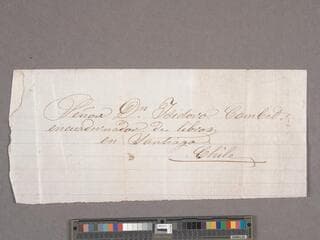 Señor Dn. Isidoro Combet
encuadernador de libros
en Santiago
Chile